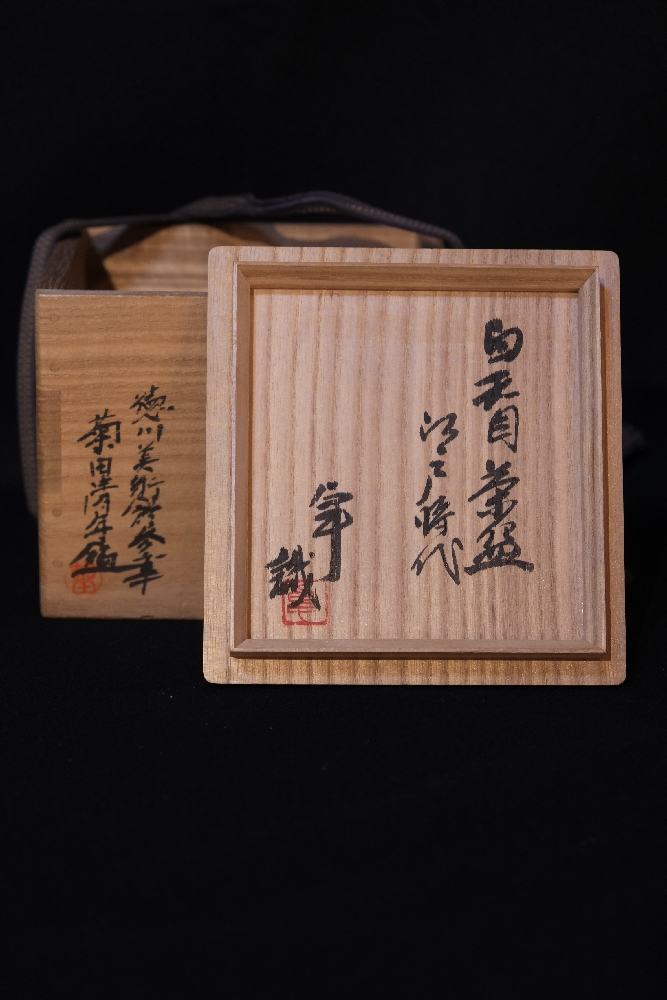 白天目茶盌
江戸時代
峯
誠
徳川美術館参事
菊田清年鑑